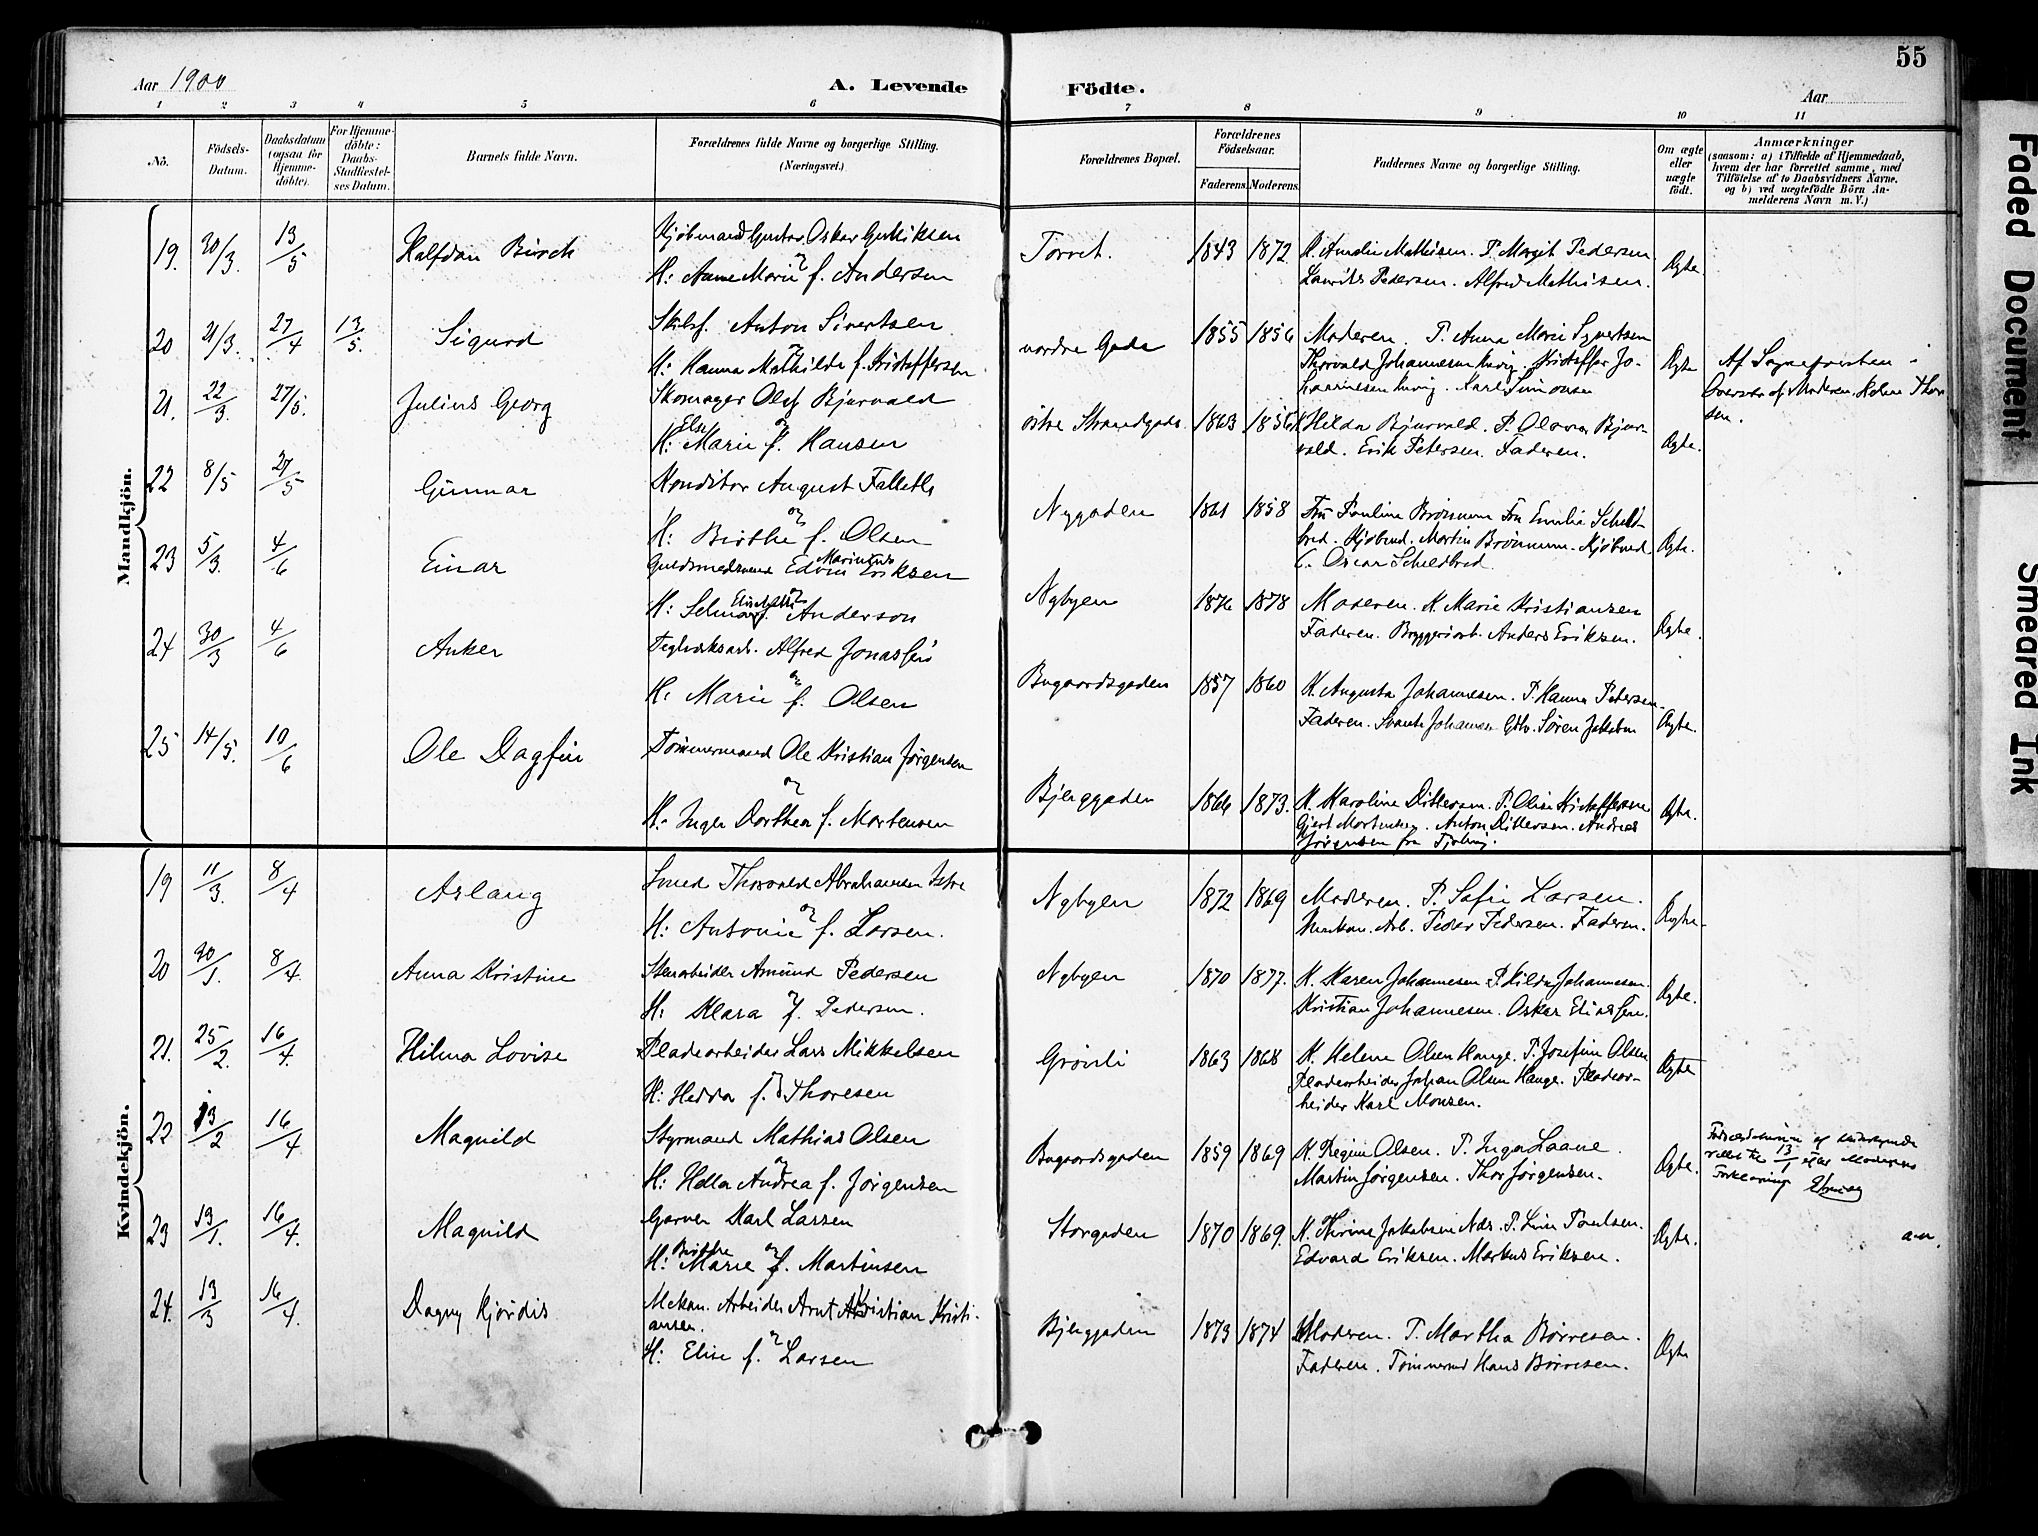 55
Aar 1900
A. Levende
Födte.
Aar
1 2 3 4 5 6 7 8 9 10 11
No.
Födsels-Datum.
Daabsdatum (ogsaa for Hjemme-döbte).
For Hjemme-döbte: Daabs-Stadfæstel-ses Datum.
Barnets fulde Navn.
Forældrenes fulde Navne og borgerlige Stilling. (Næringsvei.)
Forældrenes Bopæl.
Forældrenes Födselsaar.
Faderens. Moderens.
Faddernes Navne og borgerlige Stilling.
Om ægte eller uægte födt.
Anmærkninger
(saasom: a) i Tilfælde af Hjemmedaab,
hvem der har forrettet samme, med
Tilföielse af to Daabsvidners Navne,
og b) ved uægtefödte Börn An-
melderens Navn m. V.)
Mandkjön.
19. 30/3. 13/5 Halfdan Birch Kjøbmand Gustav Oskar
H: Anne Marie f. Andersen
Torvet. 1843 1872 K. Amalie Mathisen. P. Margit Pedersen
Laurits Pedersen. Alfred Mathisen. Ægte
20 21/3. 27/4 13/5. Sigurd Anton Sivertsen
H: Hanna Mathilde f. Kristoffersen
nordre Gade 1855 1856 Moderen. P. Anna Marie Syvertsen
Thorvald Johannesen Kristoffer Jo-
hannesen Karl Simonsen Ægte
Af
Overvær af Moderen, Thor
sen.
21. 22/3. 27/5. Julius Georg Skomager Olaf Bjurvald
H: Else Marie f. Hansen
østre Strandgade 1863 1856 Hilda Bjurvald. P. Olava Bjur-
vald. Erik Petersen. Faderen. Ægte.
22 8/5 27/5 Gunnar Konditor August Falleth
H: Birthe f. Olsen
Nygaden 1861 1858 Fru Pauline Brønnum Fru Emilie Scheld-
bred. Kjøbmd. Martin Brønnum. Kjøbmd.
C. Oscar Scheldbred. Ægte.
23 5/3. 4/6 Einar Guldsmedsvend Edvin Marinius Eriksen
H: Selma Elisabeth f. Anderson
Nybyen 1876 1878 Moderen. K. Marie Kristiansen
Faderen. Bryggeriarb. Anders Eriksen. Ægte.
24 30/3 4/6 Anker Teglværksarb. Alfred Jonassen
H: Marie f. Olsen
Bugaardsgaden 1857 1860 K. Augusta Johannesen. P. Hanna Petersen.
Faderen. Søren Jakobsen Ægte.
25 14/5. 10/6 Ole Dagfin Tømmermand Ole Kristian Jørgensen
H: Inger Dorthea f. Mortensen
Bjerggaden 1866 1873. K. Karoline Ditlevsen. P. Olise Kristoffersen
Gjert Mortensen. Anton Ditlevsen. Andreas
Jørgensen fra Tjølling. Ægte.
Kvindekjön.
19 11/3. 8/4 Aslaug Smed Thorvald Abrahamsen
H: Antonie f. Larsen.
Nybyen 1872 1869 Moderen. P. Sofie Larsen.
Mekan. Arb. Peder Pedersen. Faderen. Ægte.
20 20/1. 8/4. Anna Kristine Stenarbeider Amund Pedersen
H: Klara f. Pedersen.
Nybyen 1870 1877. K. Karen Johannesen P. Hilda Johannesen.
Kristian Johannesen. Oskar Eliassen. Ægte.
21. 25/2. 16/4. Hilma Lovise Pladearbeider Lars Mikkelsen
H: Hedda f. Thoresen
Grønli 1863 1868 K. Helene Olsen Hauge. P. Josefine Olsen
Pladearbeider Johan Olsen Hauge. Pladear-
beider Karl Monsen. Ægte
22 13/2 16/4 Magnild Styrmand Mathias Olsen
H: Helle Andrea f. Jørgensen
Bugaardsgaden 1859 1869 K. Regine Olsen. P. Inga Laane.
Martin Jørgensen. Thor Jørgensen. Ægte.
rettet til 13/1 efter Moderens
Forklaring
23 13/1. 16/4. Magnild Garver Karl Larsen
H: Birthe Marie f. Martinsen
Storgaden 1870 1869. K. Thrine Jakobsen P. Lina Paulsen.
Edvard Eriksen. Markus Eriksen. Ægte.
24. 13/3 16/4. Dagny Hjørdis Mekan. Arbeider Arnt Kristian Kristi-
ansen.
H: Elise f. Larsen
Bjerggaden 1873 1874 Moderen. P. Martha Børresen.
Faderen. Tømmermd Hans Børresen. Ægte
Faded Document
Smeared Ink